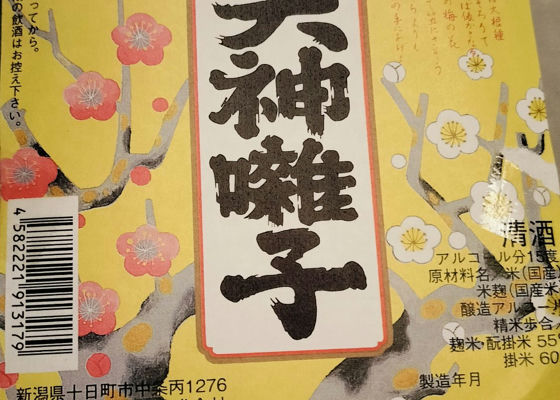 ってから。
の飲酒はお控え下さい。
天神囃子
4582221913179
清酒
アルコール分15度
原材料名/米(国産
米麹(国産米
醸造アルコー
精米歩合
麹米・酛掛米 55
掛米 60
製造年月
新潟県十日町市中条丙1276